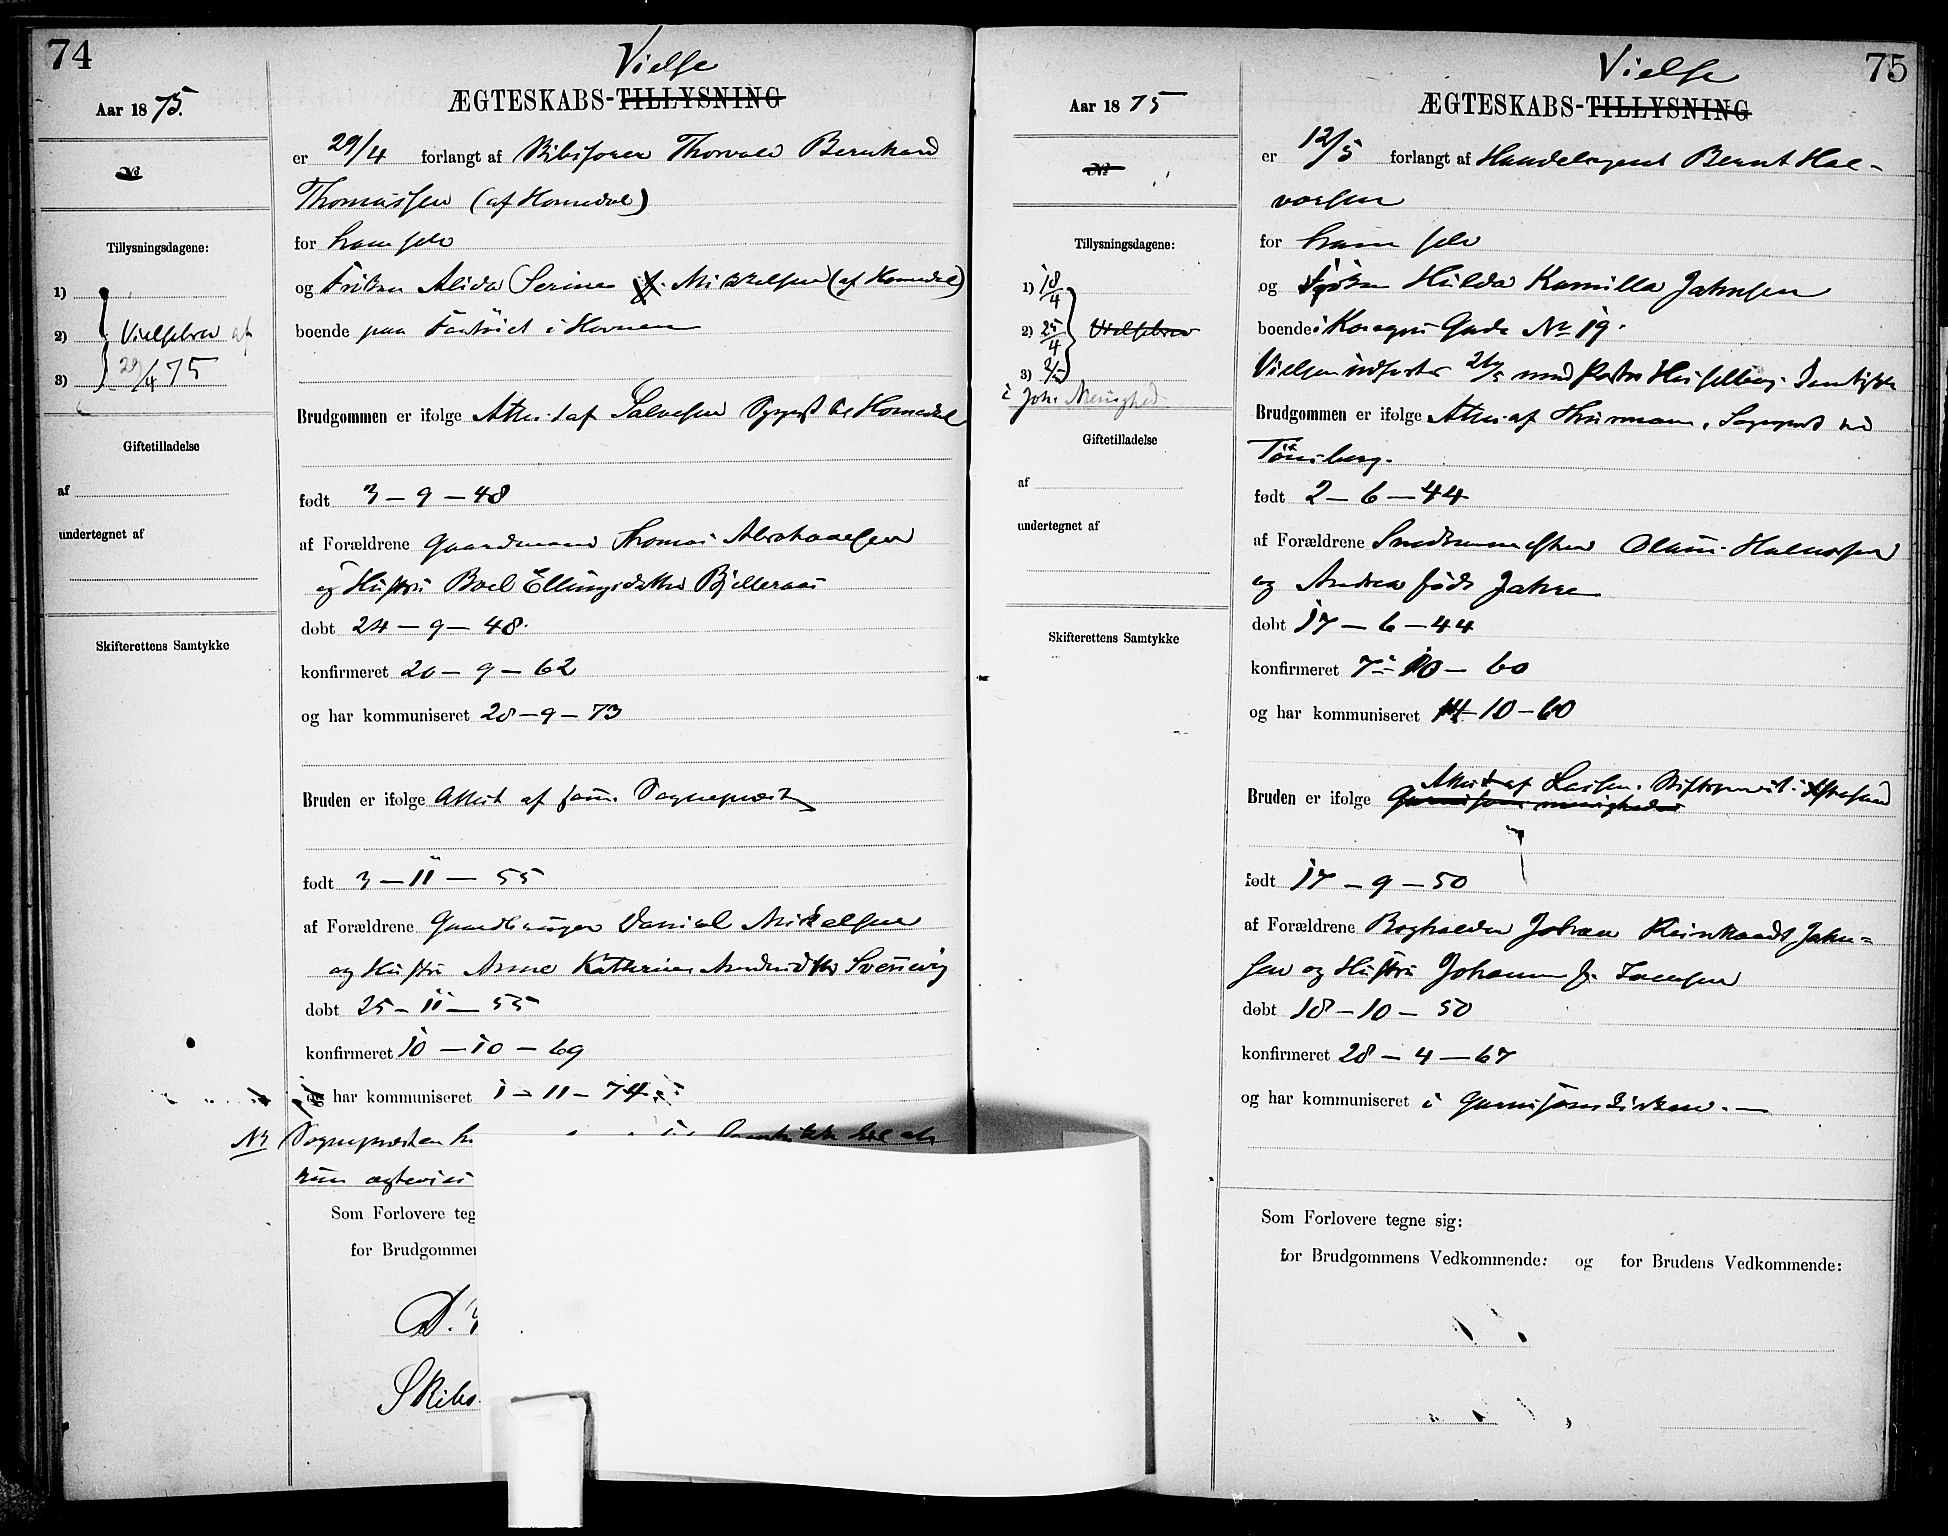 74
Vielse
Aar 1875.
ÆGTESKABS-TILLYSNING
No
er 29/4 forlangt af Skibsfører Thorvald Bernhard
Thomassen (af Homedal)
Tillysningsdagene:
for ham selv
1)
og Frøken Alida Serine Mikkelsen (af Homedal)
2) Vielsebrev af
boende paa Fartøiet i Havnen
3) 29/4 75
Brudgommen er ifølge Attest af Salvesen Sgpst til Homedal
Giftetilladelse
af
født 3-9-48
undertegnet af
af Forældrene Gaardmand Thomas Abrahamsen
og Hustru Boel Ellingsdatter Bjelleraas
døbt 24-9-48.
Skifterettens Samtykke
konfirmeret 20-9-62
og har kommuniseret 28-9-73
Bruden er ifølge Attest af sam. Sogneprest
født 3-11-55
af Forældrene Gaardbruger Daniel Mikalsen
og Hustru Anne Kathrine
døbt 25-11-55
konfirmeret 10-10-69
og har kommuniseret 1-11-74
Nr Sognepresten
kun
Som Forlovere teg
for Brudgommen
D.
Skibs
75
Vielse
Aar 1875
ÆGTESKABS-TILLYSNING
No
er 12/5 forlangt af Handelsagent Bernt Hal-
vorsen
Tillysningsdagene:
for ham selv
1) 18/4
og Frøken Hilda Kamilla Jahnsen
2) 25/4 Vielsebrev
boende i Kongens Gade No 19.
3) 2/5
Vielsen udføres 26/5 med Pastor Hesselberg Samtykke
i Joh. Menighed
Brudgommen er ifølge Attest af Thurmann, Sogneprest ved
Tønsberg.
Giftetilladelse
af
født 2-6-44
undertegnet af
af Forældrene Smedemester Olaus Halvorsen
og Andrea født Jahre
døbt 17-6-44
Skifterettens Samtykke
konfirmeret 7-10-60
og har kommuniseret 14-10-60
Bruden er ifølge Garnisons menigheden Attest af Stiftsprovst i
født 17-9-50
af Forældrene Bogholder Johan Reinhardt Jahn-
sen og Hustru Johanne f.
døbt 18-10-50
konfirmeret 28-4-67
og har kommuniseret i Garnisonskirken.
Som Forlovere tegne sig:
for Brudgommens Vedkommende: og for Brudens Vedkommende: